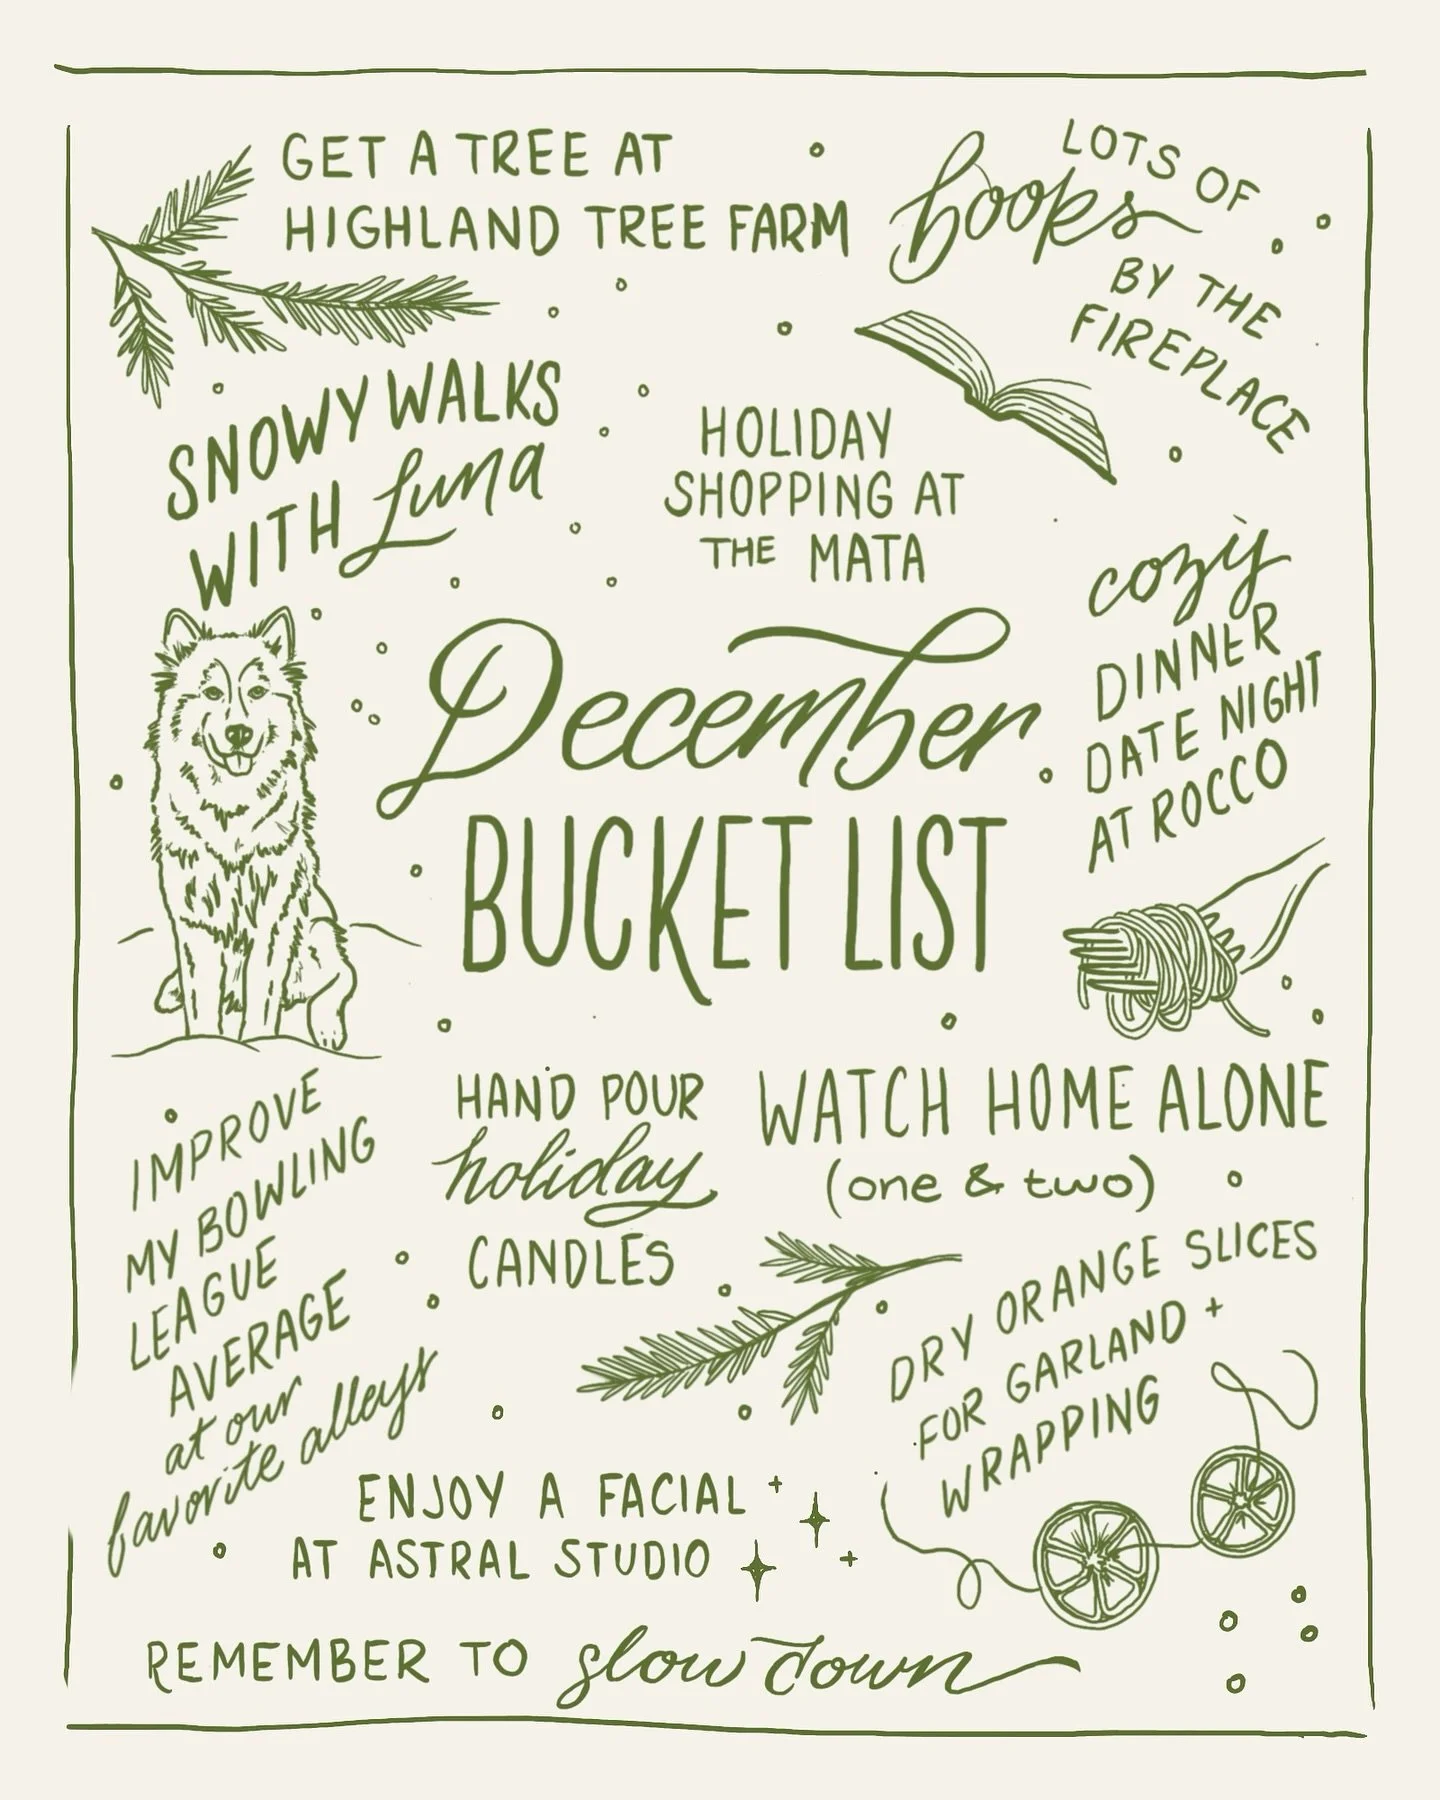 GET A TREE AT
HIGHLAND TREE FARM
LOTS OF
books
BY THE
FIREPLACE
SNOWY WALKS
WITH Luna
HOLIDAY
SHOPPING AT
THE MATA
cozy
DINNER
DATE NIGHT
AT ROCCO
December
BUCKET LIST
IMPROVE
MY BOWLING
LEAGUE
AVERAGE
at our
favorite alleys
HAND POUR
holiday
CANDLES
WATCH HOME ALONE
(one & two)
DRY ORANGE SLICES
FOR GARLAND +
WRAPPING
ENJOY A FACIAL
AT ASTRAL STUDIO
REMEMBER TO slow down